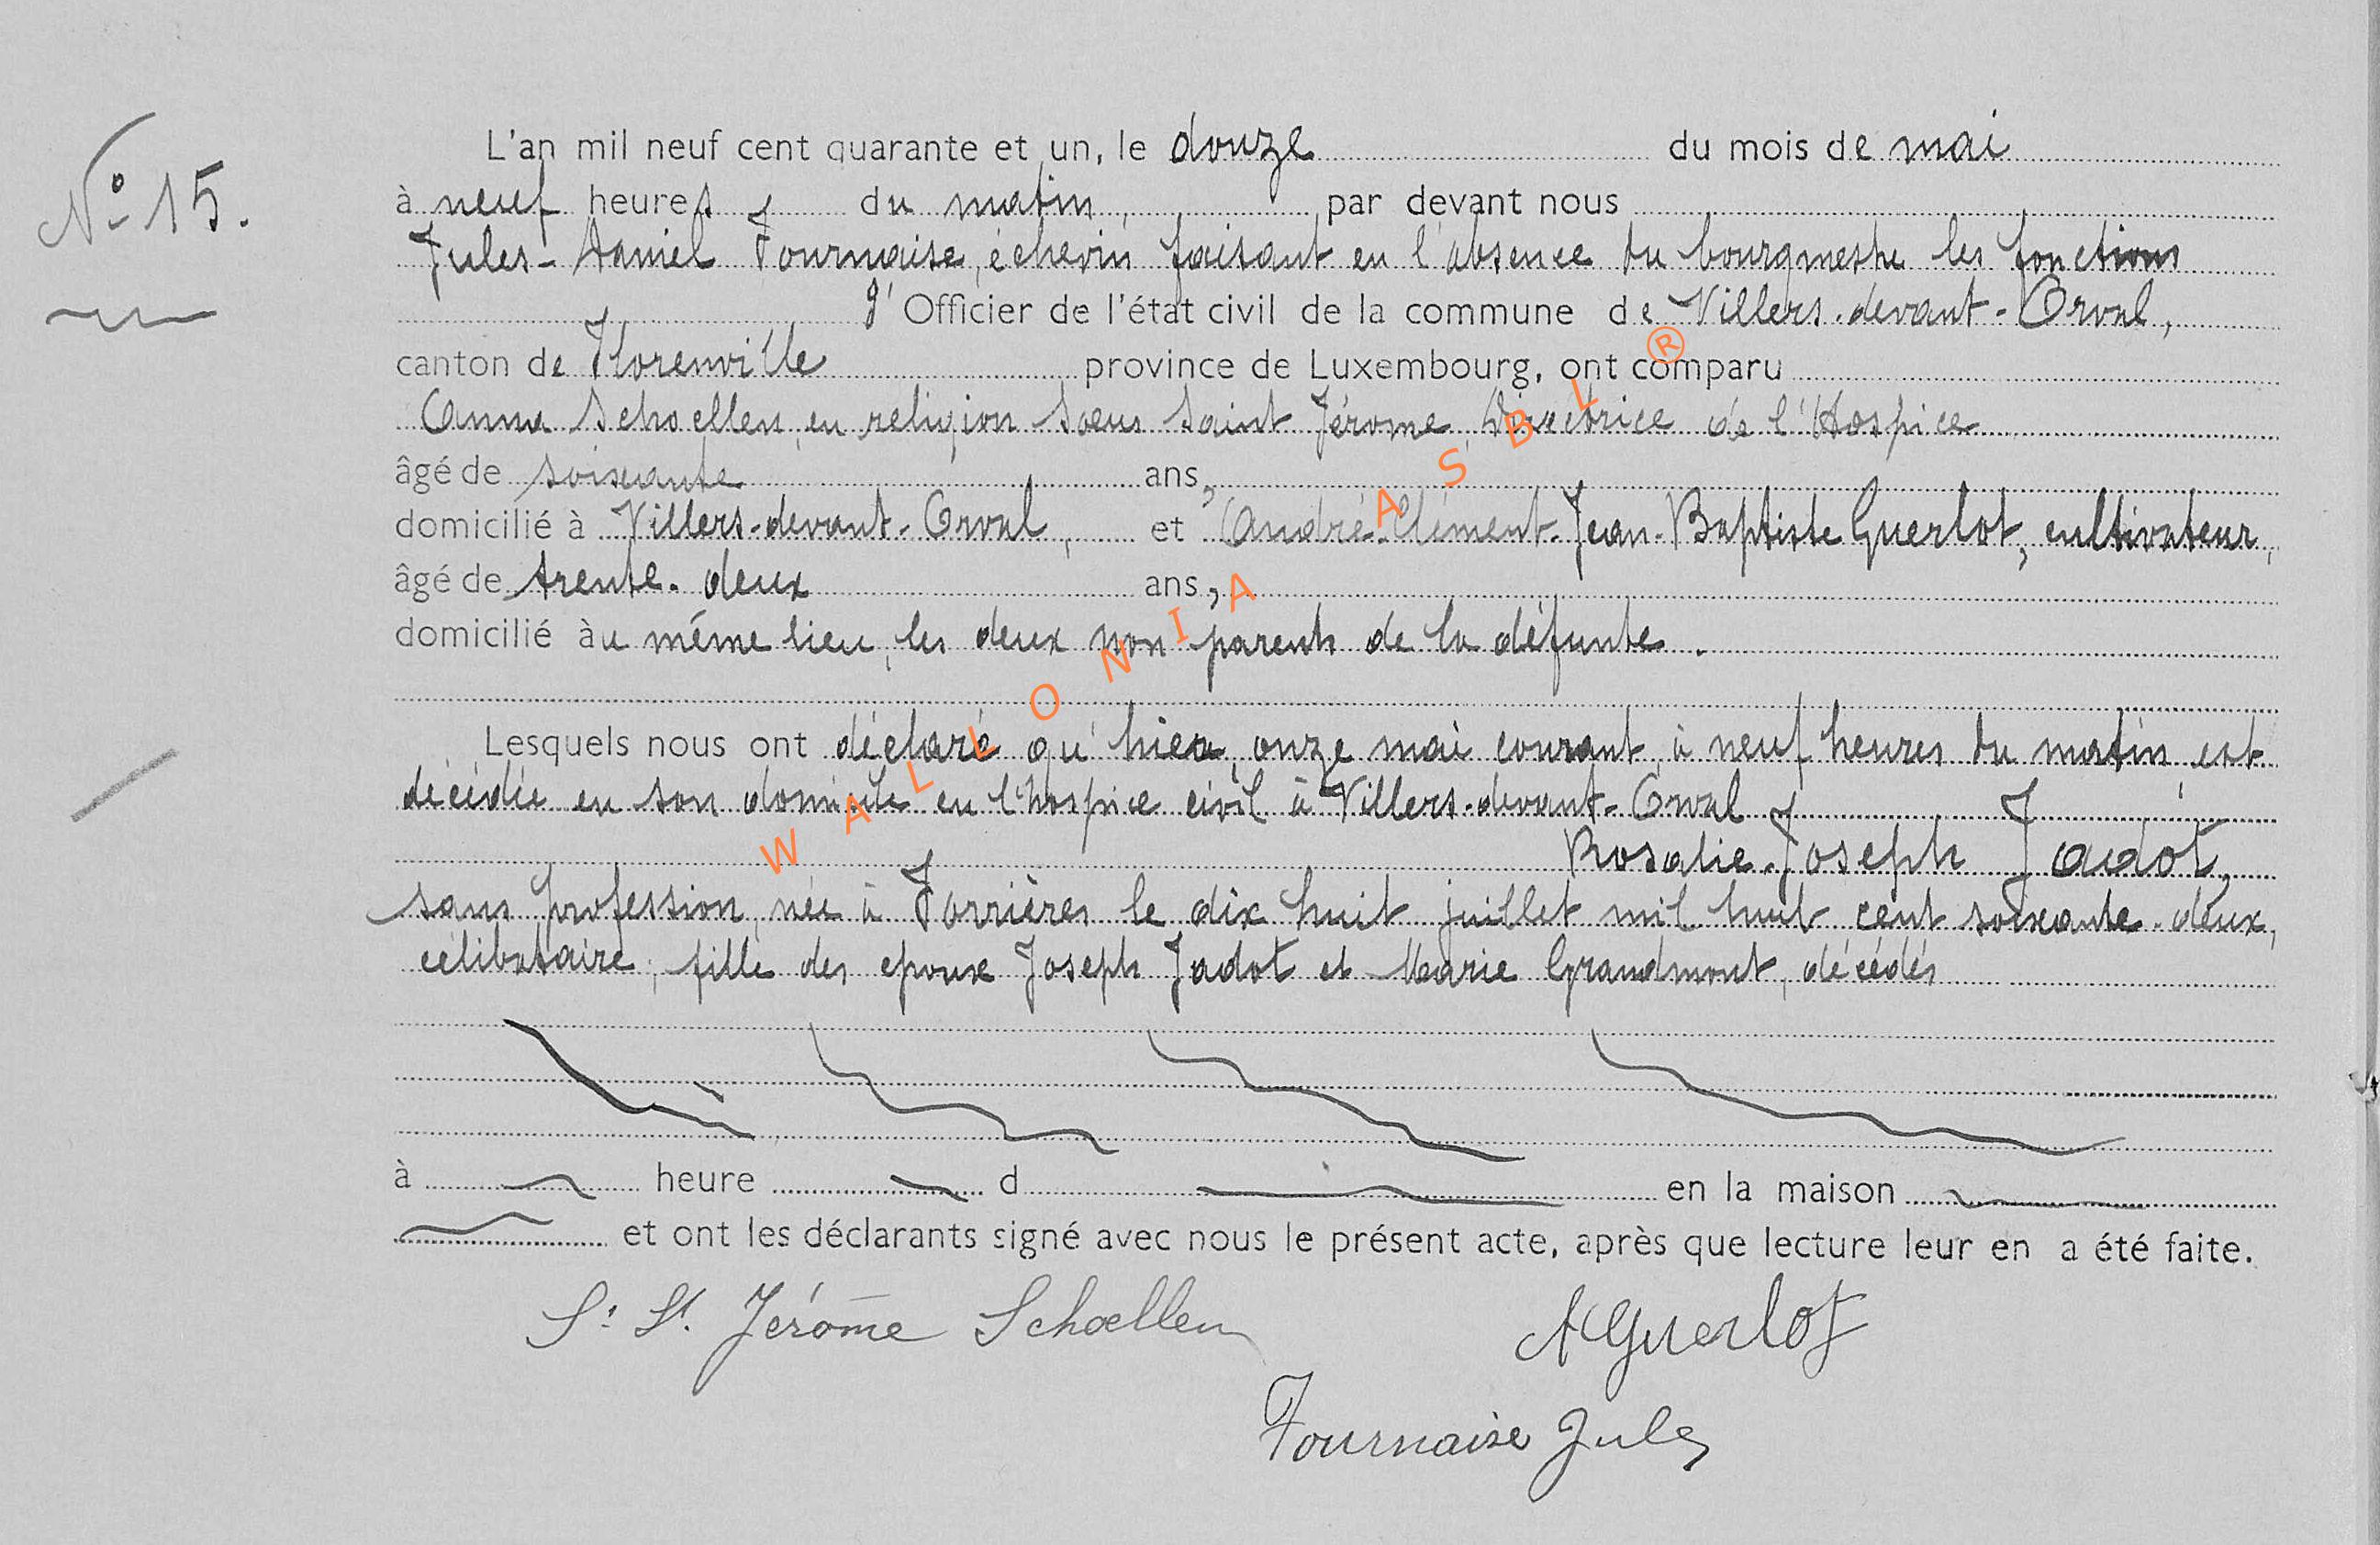 N° 15.
L'an mil neuf cent quarante et un, le douze du mois de mai
à neuf heures du matin, par devant nous
Jules-Daniel Fournaise, échevin faisant en l'absence du bourgmestre les fonctions
d'Officier de l'état civil de la commune de Villers-devant-Orval,
canton de Florenville province de Luxembourg, ont comparu
Anna Schoellen, en religion Sœur Saint Jérome, Directrice de l'Hospice
âgé de soixante ans,
domicilié à Villers-devant-Orval, et André-Clément-Jean-Baptiste Guerlot, cultivateur,
âgé de trente-deux ans,
domicilié àu même lieu, les deux non parents de la défunte.
Lesquels nous ont déclaré qu'hier, onze mai courant, à neuf heures du matin, est
décédée en son domicile en l'hospice civil à Villers-devant-Orval
Rosalie-Joseph Jadot,
sans profession, née à Forrières le dix huit juillet mil huit cent soixante-deux,
célibataire, fille des epoux Joseph Jadot et Marie Grandmont, décédés
à heure d en la maison
et ont les déclarants signé avec nous le présent acte, après que lecture leur en a été faite.
Sr St. Jérôme Schoellen AGuerlot
Fournaise Jules
WALLONIA ASBL ®